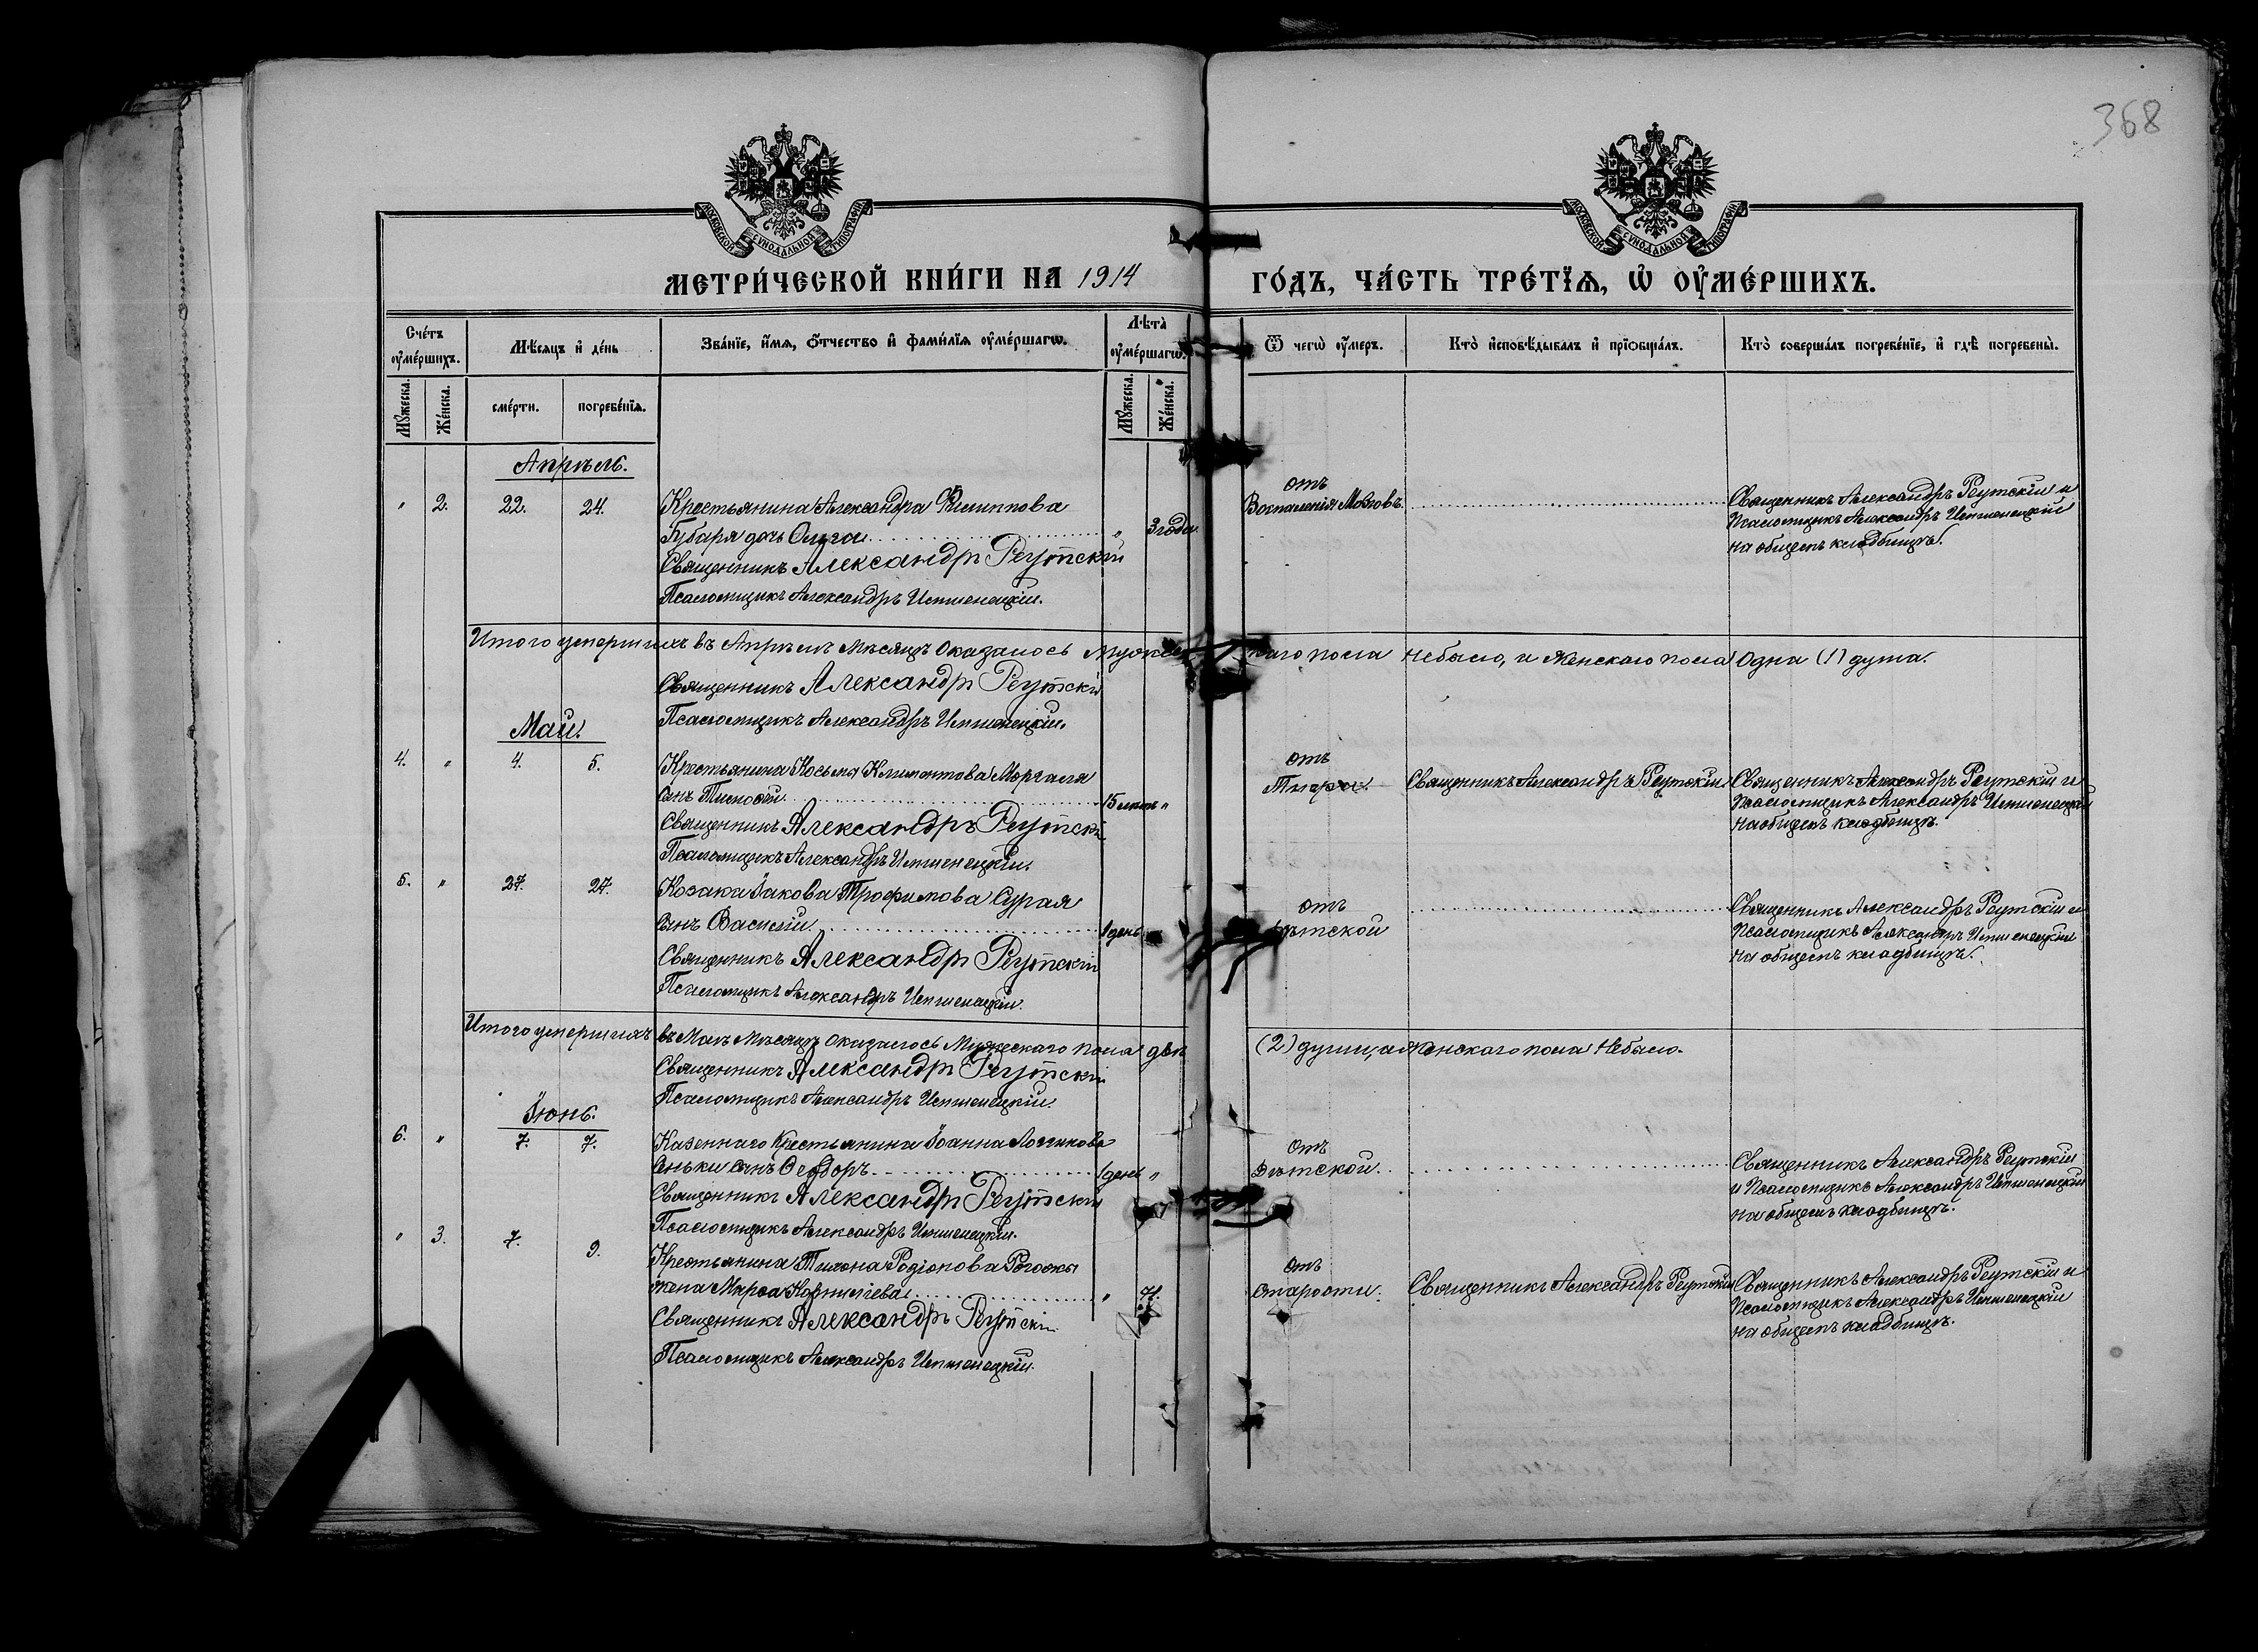 368
МОСКОВСКОЙ СѴНОДАЛЬНОЙ ТИПОГРАФІИ
МОСКОВСКОЙ СѴНОДАЛЬНОЙ ТИПОГРАФІИ
МЕТРИ́ЧЕСКОЙ КНИ́ГИ НА 1914 ГО́ДЪ, ЧА́СТЬ ТРЕ́ТЇѦ, Ѡ҆ ОУ҆МЕ́РШИХЪ.
Сче́тъ оу҆ме́ршихъ.
Мѣ́сяцъ и҆ де́нь
Зва́нїе, и҆́мѧ, ѻ҆́тчество и҆ фами́лїѧ оу҆ме́ршагѡ.
Лѣ̑та оу҆ме́ршагѡ.
Ѿ чегѡ̀ оу҆́меръ.
Кто̀ и҆сповѣ́дывалъ и҆ прїѡбща́лъ.
Кто̀ соверша́лъ погребе́нїе, и҆ гдѣ̀ погребены̀.
Мꙋ́жеска. Же́нска. сме́рти. погребе́нїѧ. Мꙋ́жеска. Же́нска.
Апрѣль.
" 2. 22. 24. Крестьянина Александра Филиппова
Губаря дочь Ольга " 3 года.
Священникъ Александръ Реутскій
Псаломщикъ Александръ
отъ
Воспаленія Мозговъ.
Священникъ Александръ Реутскій и
Псаломщикъ Александръ
на общемъ кладбищѣ.
Итого умершихъ въ Апрѣлѣ Мѣсяцѣ оказалось Мужескаго пола небыло, и Женскаго пола Одна (1) душа.
Священникъ Александръ Реутскій
Псаломщикъ Александръ
Май.
4. " 4. 5. Крестьянина Косьмы Климентова Моргаля
сынъ Тимофей 15 лѣтъ "
Священникъ Александръ Реутскій
Псаломщикъ Александръ
отъ
Священникъ Александръ Реутскій
Священникъ Александръ Реутскій и
Псаломщикъ Александръ
на общемъ кладбищѣ.
5. " 27. 27. Козака Іакова Трофимова Сурая
сынъ Василій 1 день
Священникъ Александръ Реутскій
Псаломщикъ Александръ
отъ
Дѣтской
Священникъ Александръ Реутскій и
Псаломщикъ Александръ
на общемъ кладбищѣ.
Итого умершихъ въ Маѣ Мѣсяцѣ оказалось Мужескаго пола двѣ (2) души, а Женскаго пола Небыло.
Священникъ Александръ Реутскій
Псаломщикъ Александръ
Іюнь.
6. " 7. 7. Казеннаго Крестьянина Іоанна Логинова
сынъ Ѳеодоръ 1 день "
Священникъ Александръ Реутскій
Псаломщикъ Александръ
отъ
Дѣтской
Священникъ Александръ Реутскій
и Псаломщикъ Александръ
на общемъ кладбищѣ.
" 3. 7. 9. Крестьянина Тихона Родіонова
жена Марѳа Корниліева "
Священникъ Александръ Реутскій
Псаломщикъ Александръ
отъ
старости.
Священникъ Александръ Реутскій
Священникъ Александръ Реутскій и
Псаломщикъ Александръ
на общемъ кладбищѣ.